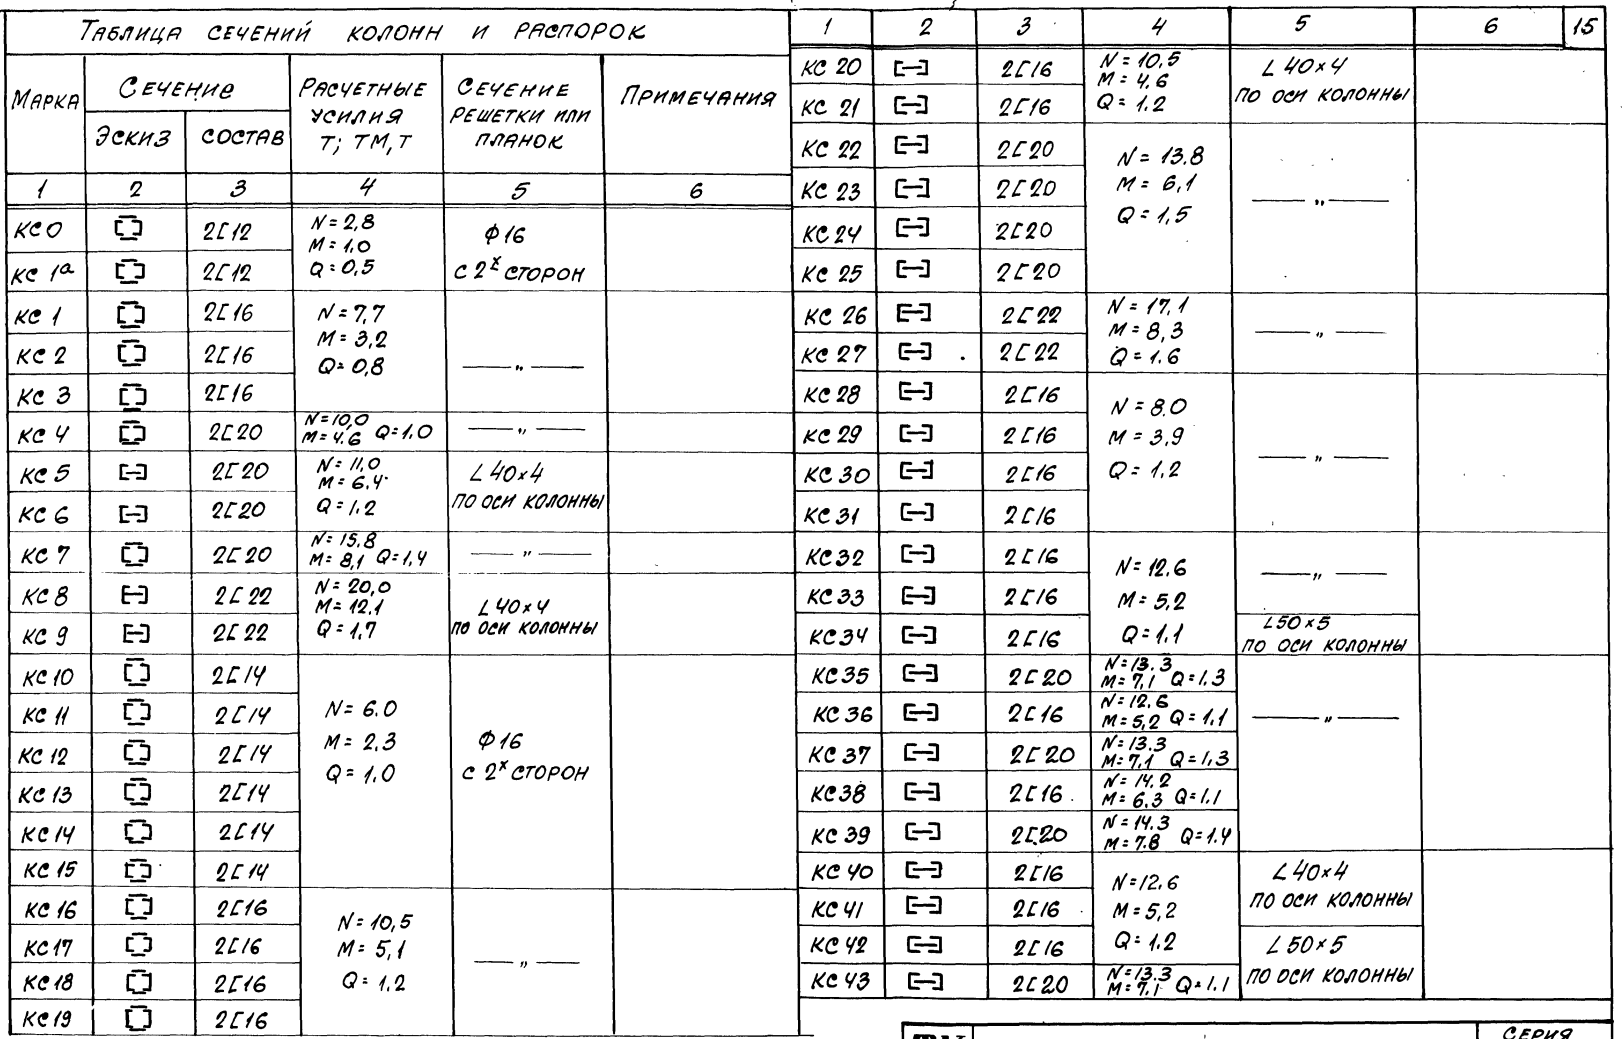 Таблица сечений колонн и распорок
Марка
Сечение
Эскиз
Состав
Расчетные усилия Т; ТМ, Т
Сечение решетки или планок
Примечания
1 2 3 4 5 6
КС 0 2[12 N=2,8 M=1,0 Q=0,5 Ф16 с 2х сторон
КС 1а 2[12
КС 1 2[16 N=7,7 M=3,2 Q=0,8 — „ —
КС 2 2[16
КС 3 2[16
КС 4 2[20 N=10,0 M=4,6 Q=1,0 — „ —
КС 5 2[20 N=11,0 M=6,4 Q=1,2 L 40×4 по оси колонны
КС 6 2[20
КС 7 2[20 N=15,8 M=8,1 Q=1,4 — „ —
КС 8 2[22 N=20,0 M=12,1 Q=1,7 L 40×4 по оси колонны
КС 9 2[22
КС 10 2[14 N=6.0 M=2,3 Q=1,0 Ф16 с 2х сторон
КС 11 2[14
КС 12 2[14
КС 13 2[14
КС 14 2[14
КС 15 2[14
КС 16 2[16 N=10,5 M=5,1 Q=1,2 — „ —
КС 17 2[16
КС 18 2[16
КС 19 2[16
1 2 3 4 5 6 15
КС 20 2[16 N=10,5 M=4,6 Q=1.2 L 40×4 по оси колонны
КС 21 2[16
КС 22 2[20 N=13.8 M=6,1 Q=1,5 — „ —
КС 23 2[20
КС 24 2[20
КС 25 2[20
КС 26 2[22 N=17,1 M=8,3 Q=1.6 — „ —
КС 27 2[22
КС 28 2[16 N=8.0 M=3,9 Q=1,2 — „ —
КС 29 2[16
КС 30 2[16
КС 31 2[16
КС 32 2[16 N=12,6 M=5,2 Q=1,1 — „ —
КС 33 2[16
КС 34 2[16 L 50×5 по оси колонны
КС 35 2[20 N=13.3 M=7,1 Q=1.3 — „ —
КС 36 2[16 N=12,6 M=5,2 Q=1,1
КС 37 2[20 N=13.3 M=7,1 Q=1,3
КС 38 2[16 N=14,2 M=6.3 Q=1.1
КС 39 2[20 N=14.3 M=7.8 Q=1.4
КС 40 2[16 N=12.6 M=5,2 Q=1.2 L 40×4 по оси колонны
КС 41 2[16
КС 42 2[16 L 50×5 по оси колонны
КС 43 2[20 N=13.3 M=7.1 Q=1.1
Серия